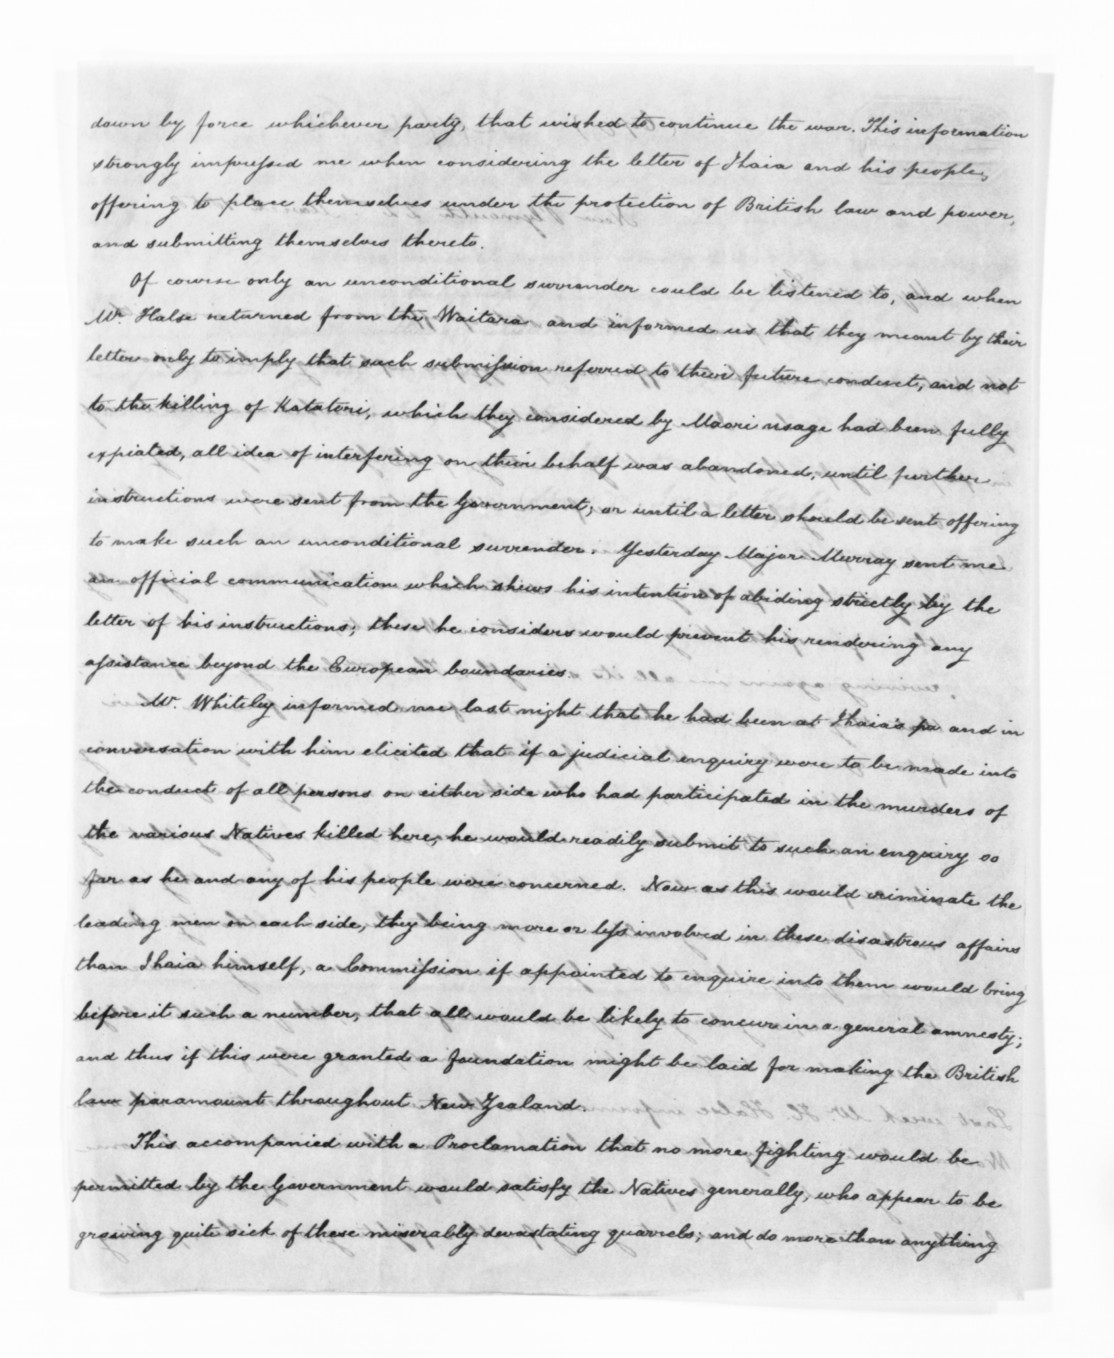 down by force whichever party, that wished to continue the war. This information
strongly impressed me when considering the letter of Ihaia and his people,
offering to place themselves under the protection of British law and power,
and submitting themselves thereto.
Of course only an unconditional surrender could be listened to, and when
Mr. Halse returned from the Waitara and informed us that they meant by their
letter only to imply that such submission referred to their future conduct, and not
to the killing of Katatori, which they considered by Maori usage had been fully
expiated, all idea of interfering on their behalf was abandoned, until further
instructions were sent from the Government, or until a letter should be sent offering
to make such an unconditional surrender. Yesterday Major Murray sent me
an official communication which shews his intention of abiding strictly by the
letter of his instructions; these he considers would prevent his rendering any
assistance beyond the European boundaries.
Mr. Whiteley informed me last night that he had been at Ihaia's pa and in
conversation with him elicited that if a judicial enquiry were to be made into
the conduct of all persons on either side who had participated in the murders of
the various Natives killed here, he would readily submit to such an enquiry so
far as he and any of his people were concerned. Now as this would criminate the
leading men on each side, they being more or less involved in these disastrous affairs
than Ihaia himself, a Commission if appointed to enquire into them would bring
before it such a number, that all would be likely to concur in a general amnesty;
and thus if this were granted a foundation might be laid for making the British
law paramount throughout New Zealand.
This accompanied with a Proclamation that no more fighting would be
permitted by the Government would satisfy the Natives generally, who appear to be
growing quite sick of these miserably devastating quarrels; and do more than anything